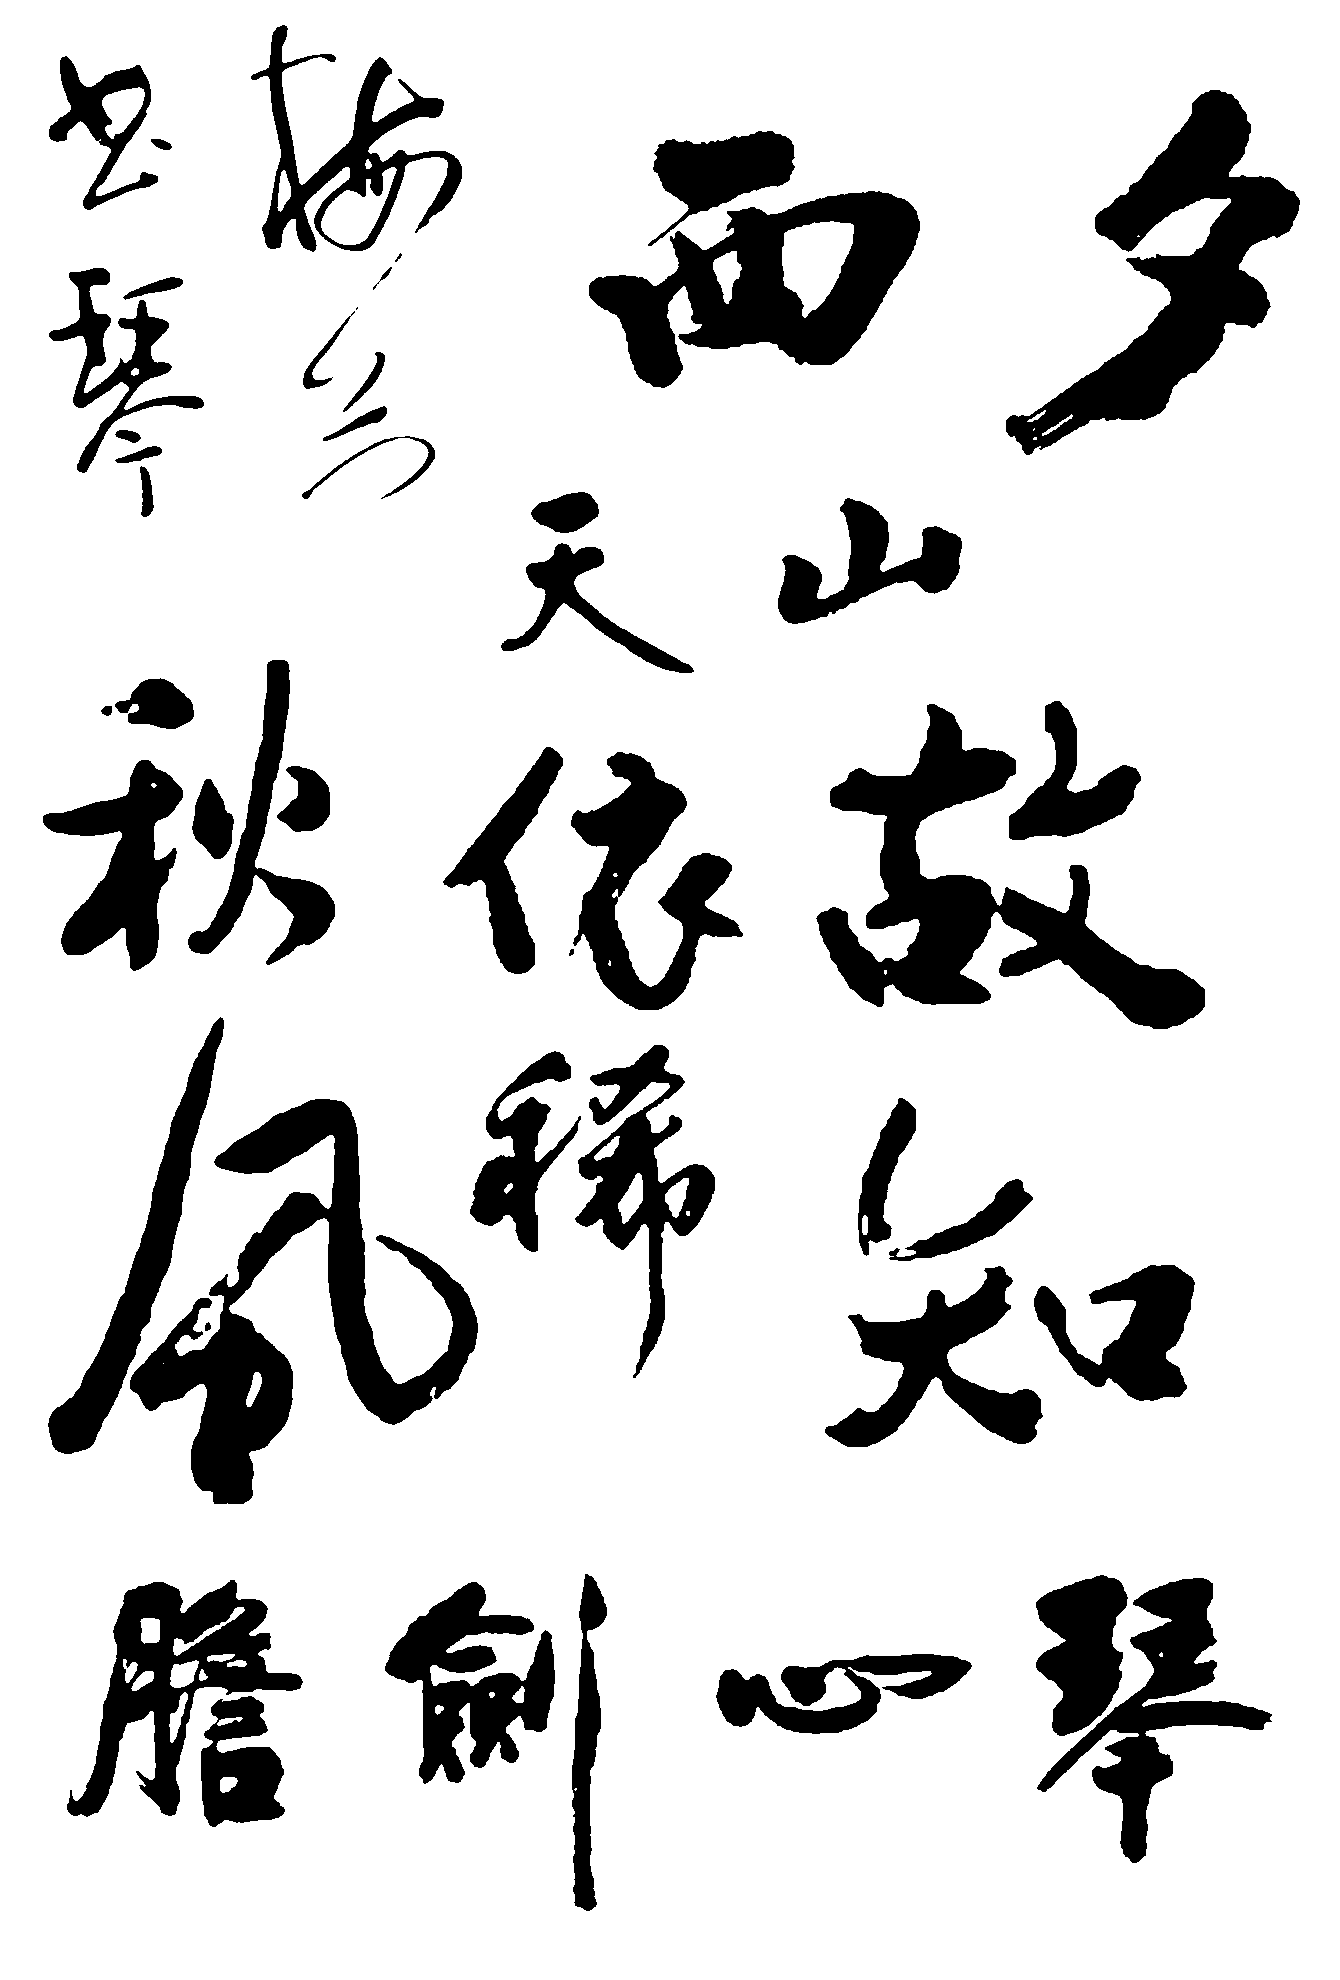 夕
西
山
天
故知
依稀
秋風
梅芳
琴
琴心劍膽